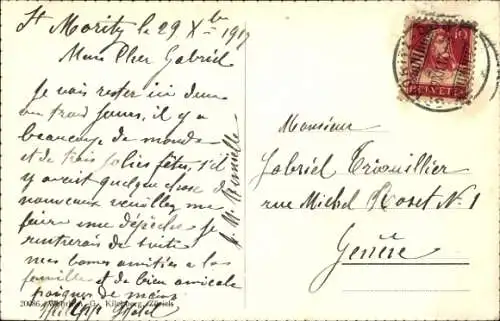 St Moritz le 29 Xbre 1917
Mon Cher Gabriel
Je vais rester ici deux
ou trois jours, il y a
beaucoup de monde
et de très jolies fêtes, s'il
y avait quelque chose de
nouveau veuillez me
faire une dépêche je
rentrerais de suite
mes bonnes amitiés à la
famille et de bien amicale
poignée de mains
Hotel
10
HELVETIA
Monsieur
Gabriel Trouillier
rue Michel Roset No 1
Genève